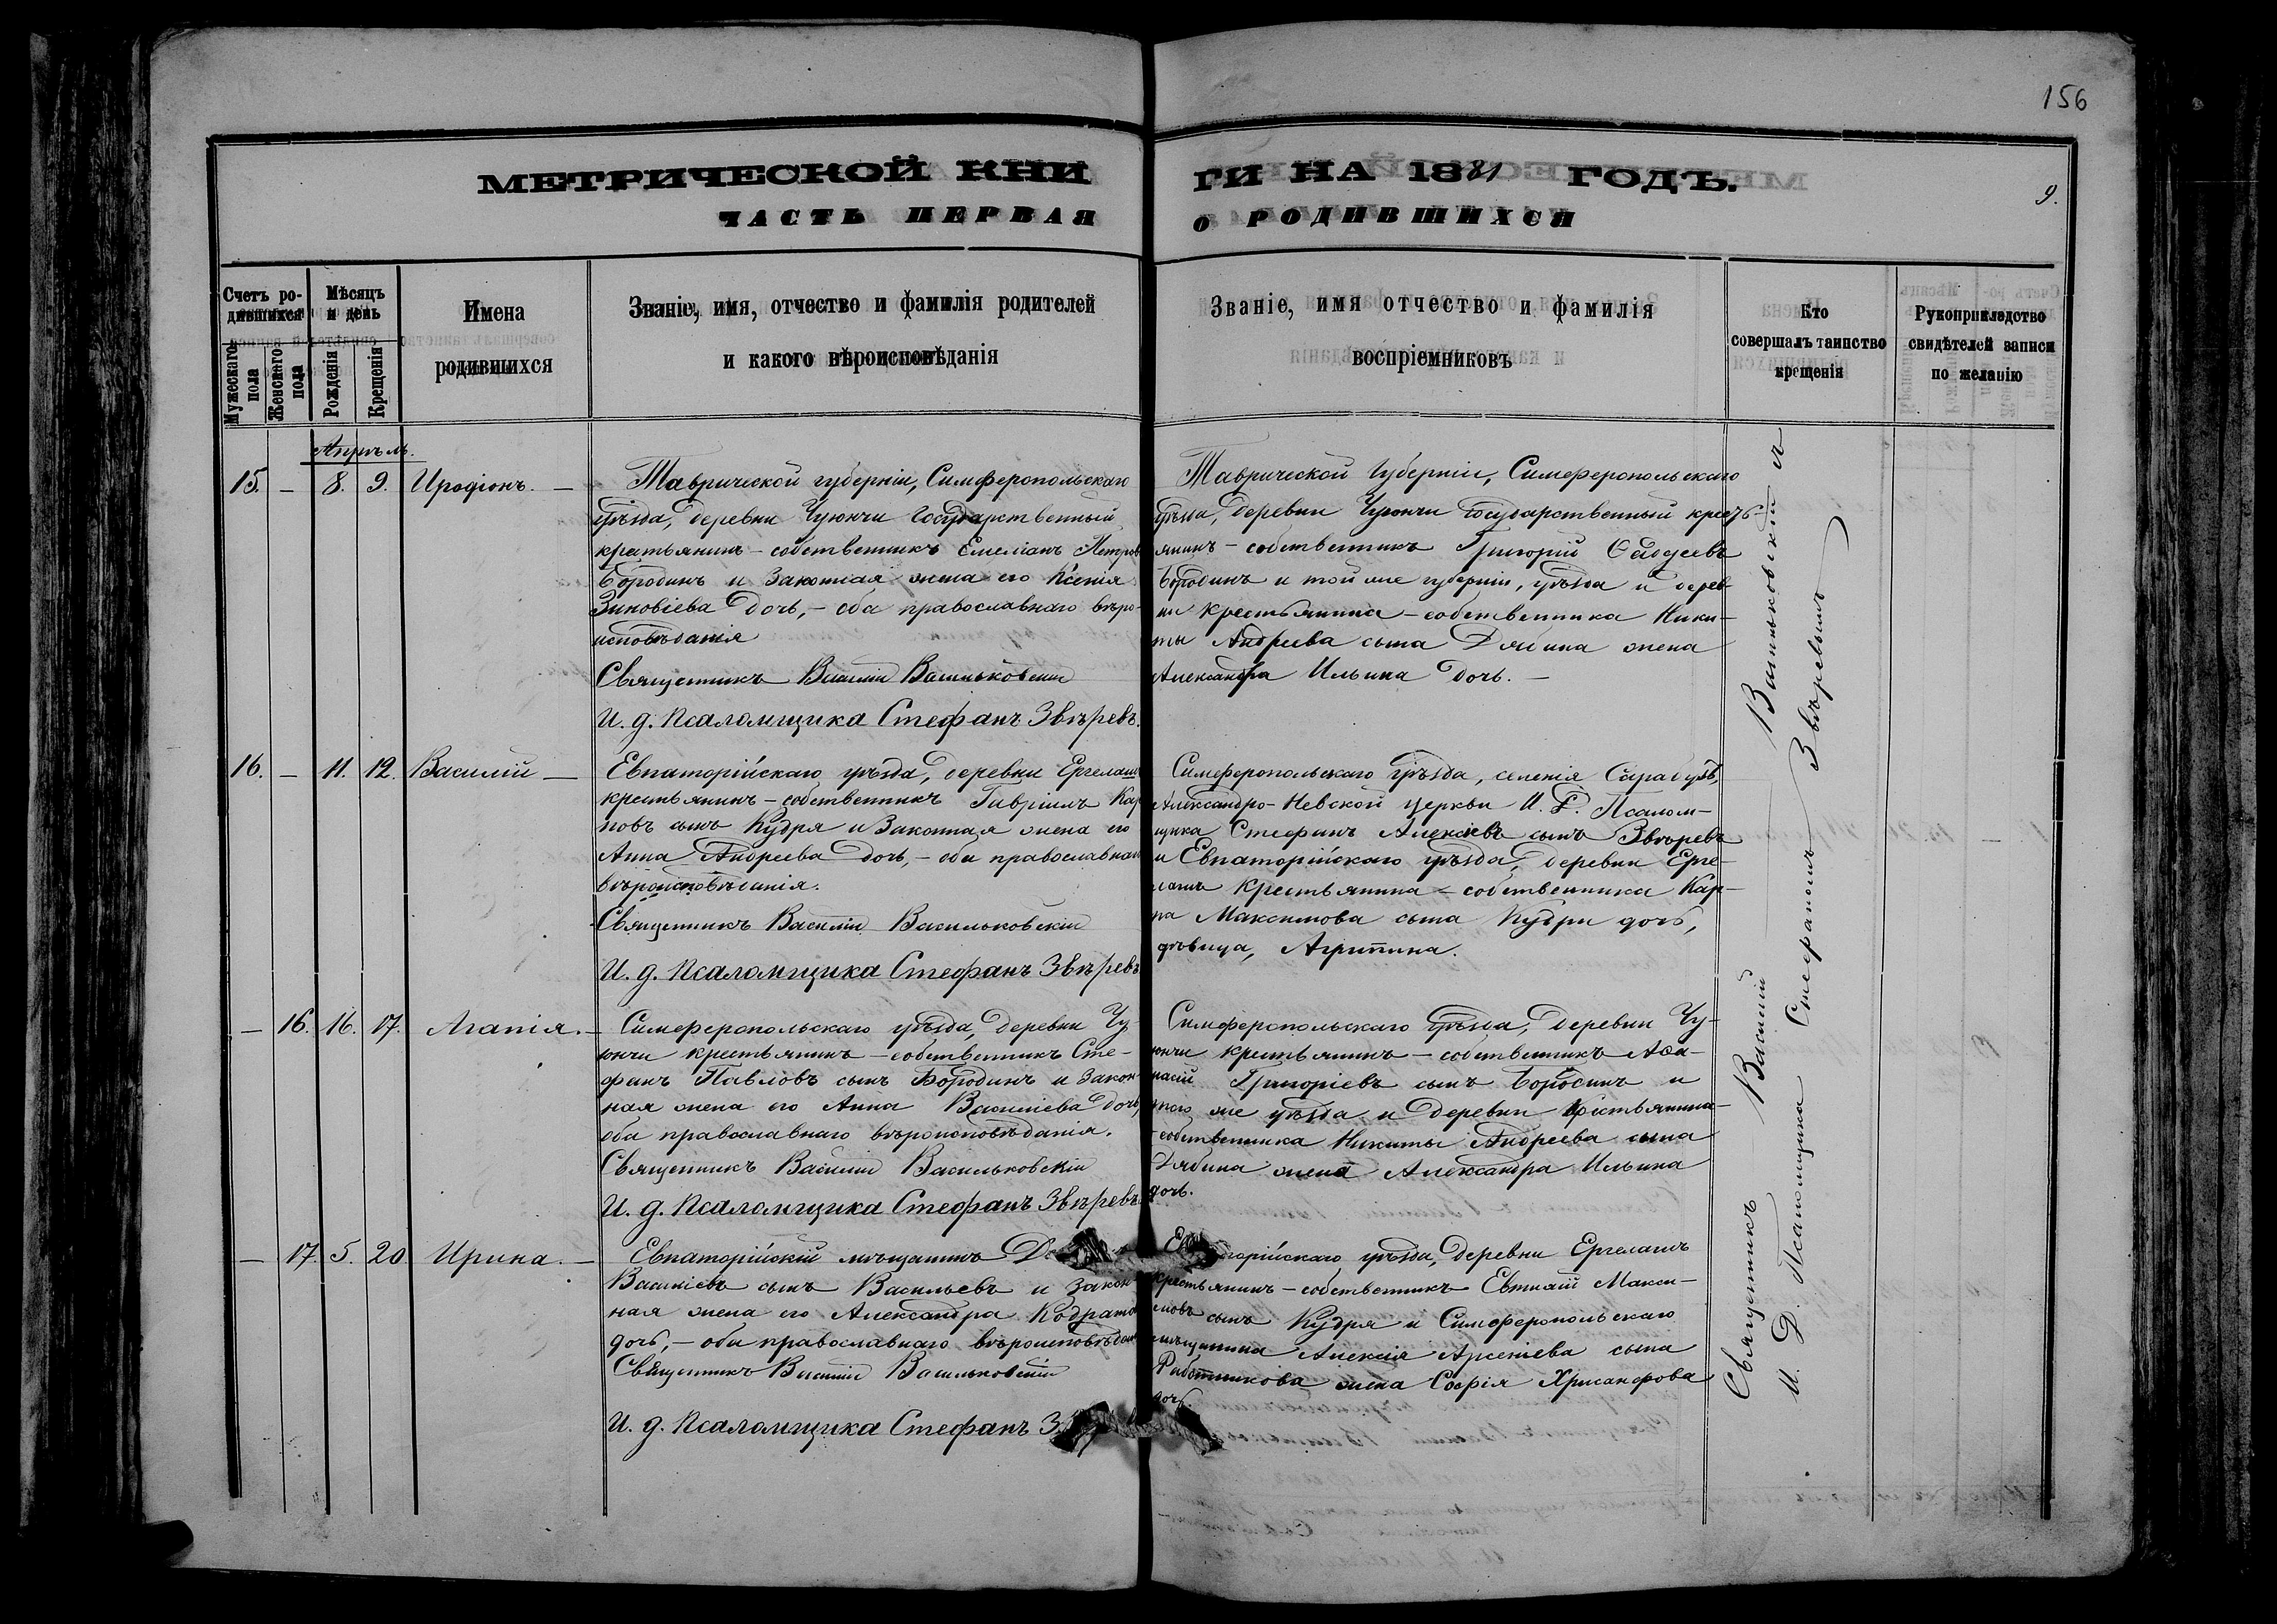 156
МЕТРИЧЕСКОЙ КНИ
ГИ НА 1881 ГОДЪ.
9.
ЧАСТЬ ПЕРВАЯ
О РОДИВШИХСЯ
Счетъ ро-
дившихся
Мужескаго пола
Женскаго пола
Мѣсяцъ
и день
Рожденія
Крещенія
Имена
родившихся
Званіе, имя, отчество и фамилія родителей
и какого вѣроисповѣданія
Званіе, имя отчество и фамилія
воспріемниковъ
Кто
совершалъ таинство
крещенія
Рукоприкладство
свидѣтелей записи
по желанію
Апрѣль.
15. – 8. 9. Иродіонъ. –
Таврической губерніи, Симферопольскаго
уѣзда, деревни Чуюнчи Государственный
кратьянинъ – собственникъ Емеліанъ Петров
Бородинъ и Законная жена его Ксенія
Зиновіева дочь, – оба православнаго вѣро-
исповѣданія
Священникъ Василій Васильковскій
И. д. Псаломщика Стефанъ Звѣревъ.
Таврической Губерніи, Симферопольскаго
уѣзда, деревни Чуюнчи Государственный кресть-
янинъ – собственникъ Григорій
Бородинъ и той же губерніи, уѣзда и дерев
ни крестьянина – собственника Ники-
ты Андреева сына Дябина жена
Александра Ильина дочь. –
16. – 11. 12. Василій –
Евпаторійскаго уѣзда, деревни Ергелашъ
крестьянинъ – собственникъ Гавріилъ Кар
повъ сынъ Кудря и Законная жена его
Анна Андреева дочь, – оба православнаго
вѣроисповѣданія.
Священникъ Василій Васильковскій
И. д. Псаломщика Стефанъ Звѣревъ
Симферопольскаго уѣзда, селенія Сарабузъ,
Александро-Невской церкви И. Д. Псалом-
щика Стефанъ Алексіевъ сынъ Звѣревъ
и Евпаторійскаго уѣзда, деревни Ерге-
лашъ крестьянина – собственника Кар-
па Максимова сына Кудри дочь,
дѣвица, Агрипина.
– 16. 16. 17. Агапія. –
Симферопольскаго уѣзда, деревни Чу-
юнчи крестьянинъ – собственникъ Сте-
фанъ Павловъ сынъ Бородинъ и Закон-
ная жена его Анна Василіева дочь,
оба православнаго вѣроисповѣданія.
Священникъ Василій Васильковскій
И. д. Псаломщика Стефанъ Звѣревъ
Симферопольскаго уѣзда, деревни Чу-
юнчи крестьянинъ – собственникъ Аѳа-
насій Григоріевъ сынъ Бородинъ и
того же уѣзда и деревни крестьянина-
собственника Никиты Андреева сына
Дябина жена Александра Ильина
дочь.
– 17. 5. 20. Ирина. –
Евпаторійскій мѣщанинъ
Василіевъ сынъ Васильевъ и Закон-
ная жена его Александра Кодрато
дочь, – оба православнаго вѣроисповѣдан
Священникъ Василій Васильковскій
И. д. Псаломщика Стефанъ З
Евпаторійскаго уѣзда, деревни Ергелашъ
крестьянинъ – собственникъ Макси-
мовъ сынъ Кудря и Симферопольскаго
мѣщанина Алексія Арсеніева сына
Работникова жена Софія Хрисанфова
дочь.
Священникъ Василій Васильковскій и
И. Д. Псаломщика Стефаномъ Звѣревымъ